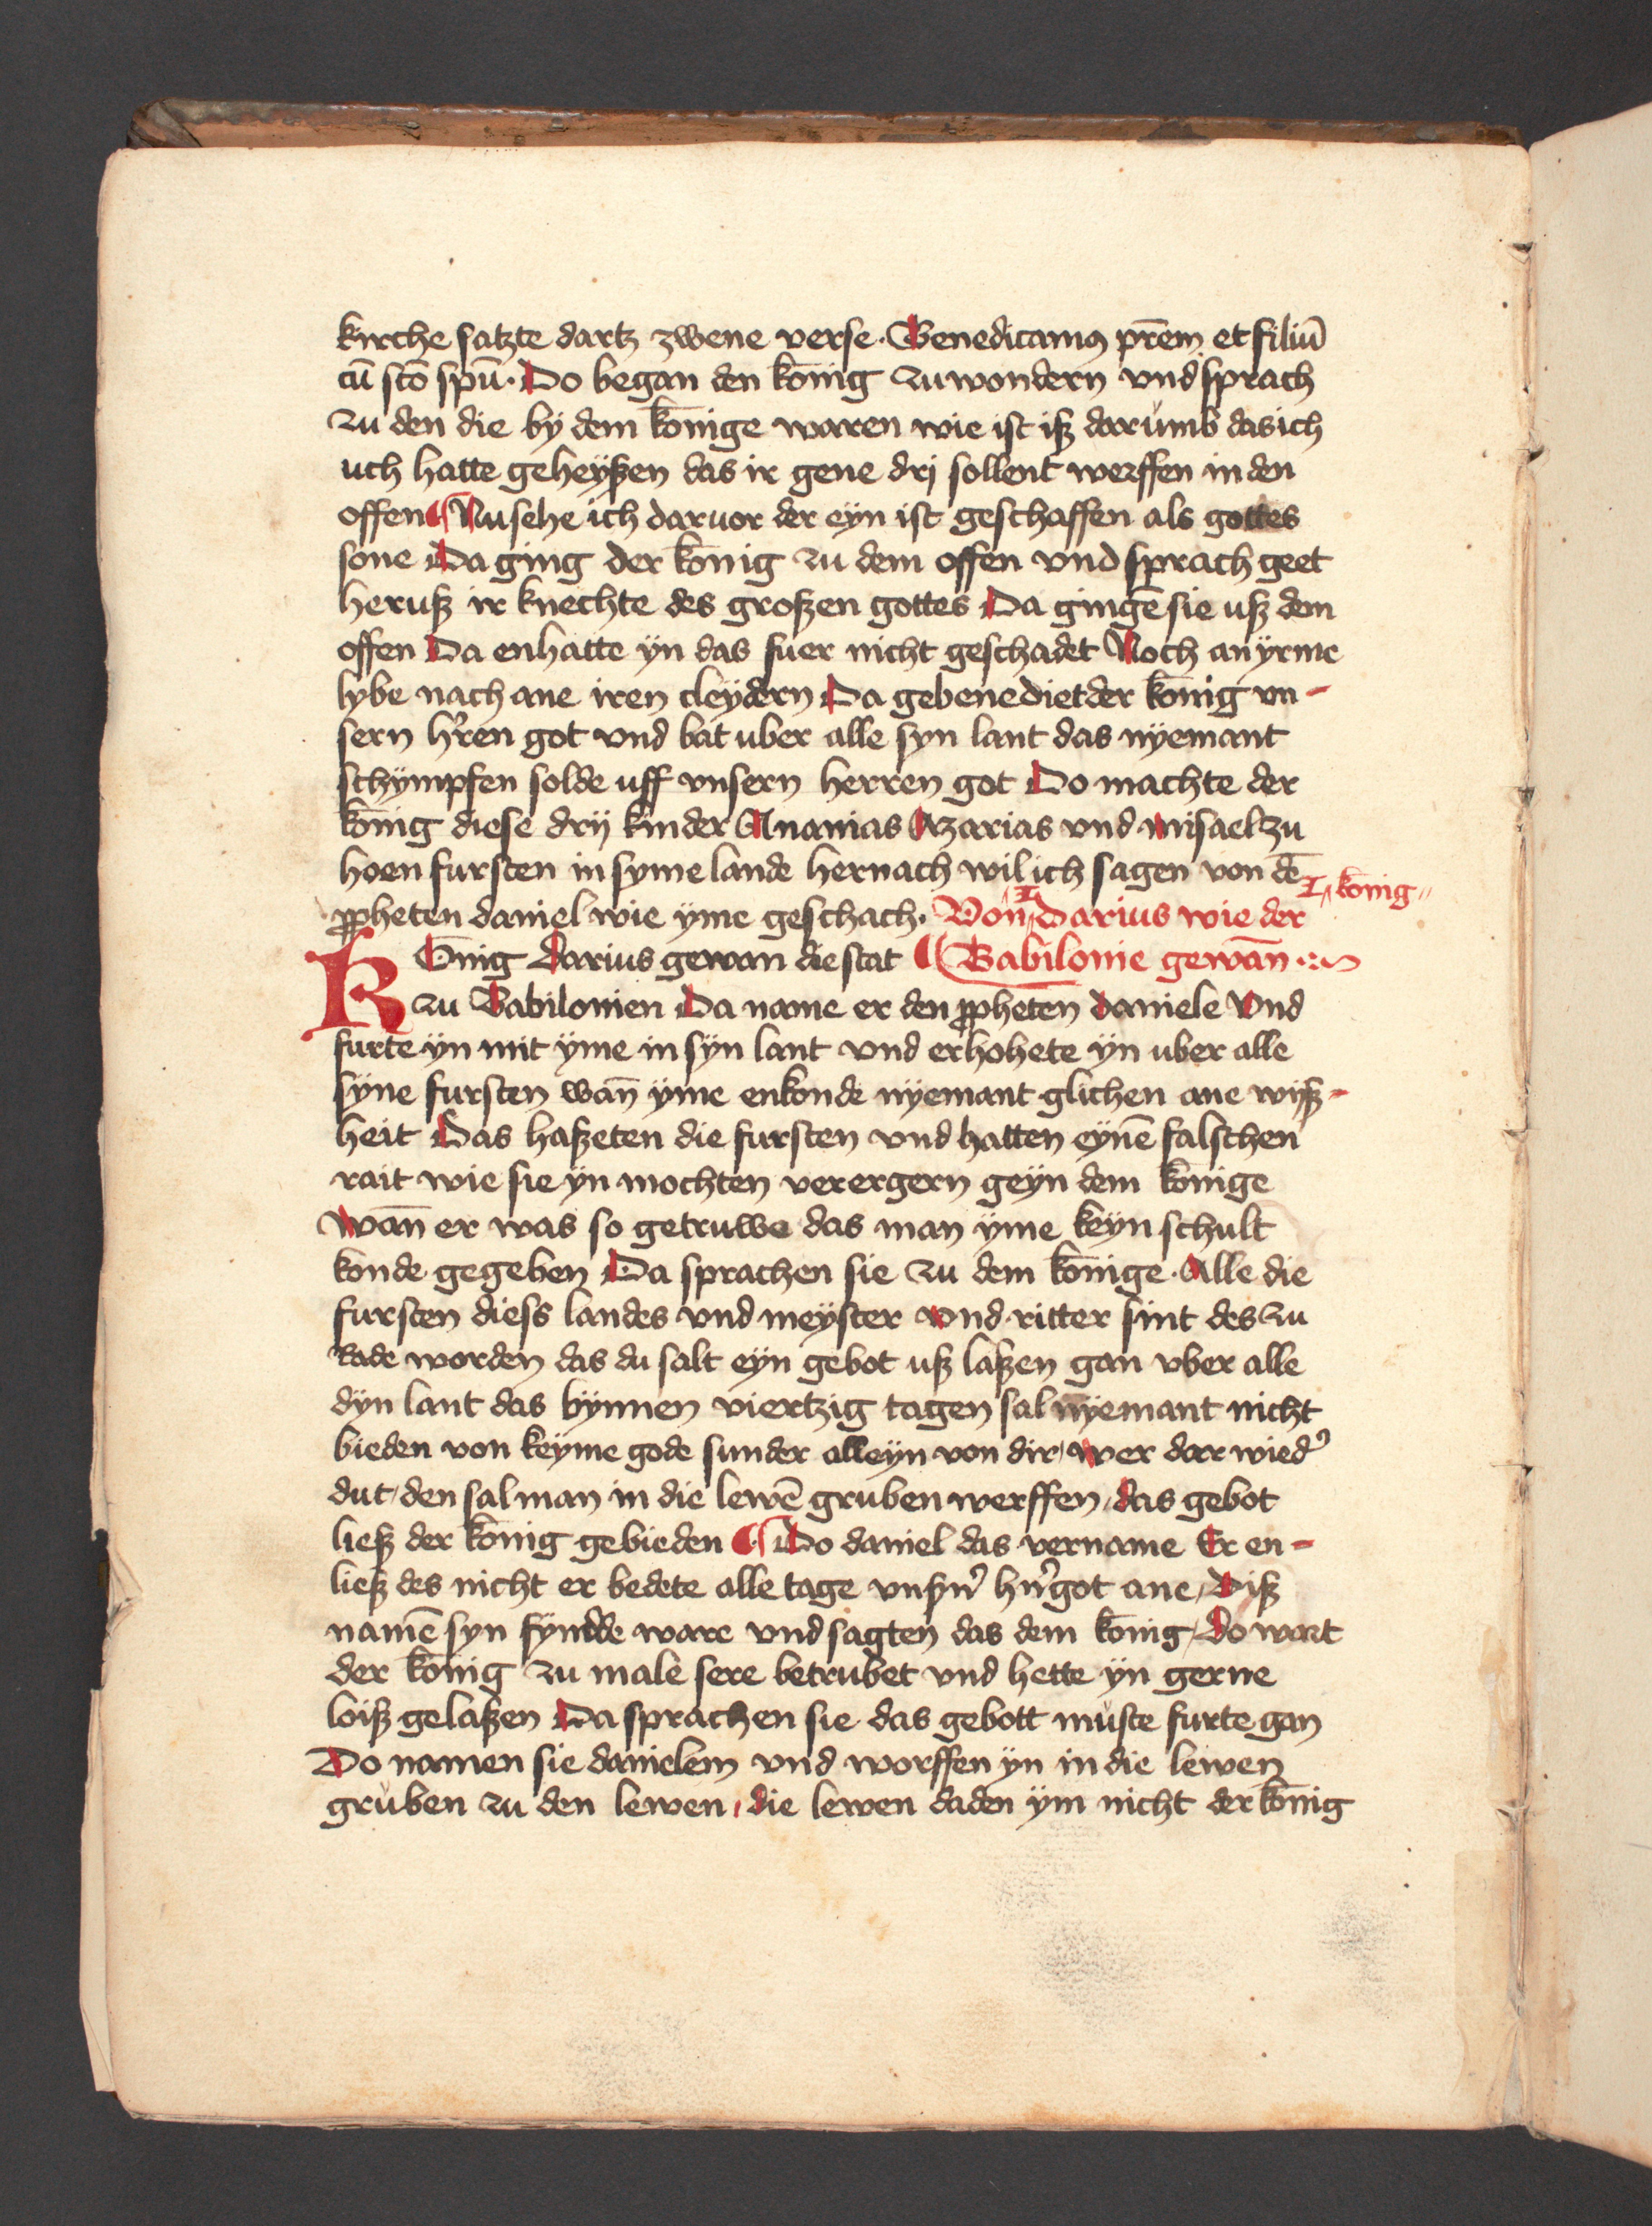 kirche satzte dartz zwene verse · Benedicamꝰ pr̄em et filiū
cū sc̄to spū · Do began den kōnig zu wondern vnd sprach
zu den die bÿ dem kōnige waren wie ist iß darumb das ich
uch hatte geheÿßen das ir gene drÿ sollent werffen in den
offen ¶ Nu sehe ich dar vor der eÿn ist geschaffen als gottes
sone Da ging der kōnig zu dem offen vnd sprach geet
heruß ir knechte des großen gottes Da gingē sie uß dem
offen Da enhatte ÿn das fuer nicht geschadet Noch an ÿrme
lybe nach ane iren cleÿdern Da gebenediet der kōnig vn-
sern hꝛ̄en got vnd bat uber alle syn lant das nÿemant
schÿmpfen solde uff vnsern herren got Do machte der
kōnig diese drÿ kinder Ananias Azarias vnd misael zu
hoen fursten in syme lande hernach wil ich sagen von dē
ꝓpheten daniel wie ÿme geschach · Von I Darius wie der I kōnig
Kōnig Darius gewan die stat ¶ Babilonie gewan̄
zu Babilonien Da name er den ꝓpheten daniele Vnd
furte ÿn mit ÿme in sÿn lant vnd erhohete ÿn uber alle
sÿne fursten wan̄ ÿme enkonde nÿemant glichen ane wÿß-
heit Das haßeten die fursten vnd hatten eÿnē falschen
rait wie sie ÿn mochten verergern geÿn dem kōnige
Wan̄ er was so getruwe das man ÿme keÿn schult
konde gegeben Da sprachen sie zu dem kōnige · Alle die
fursten diess landes vnd meÿster vnd ritter sint des zu
Rade worden das du salt eÿn gebot uß laßen gan vber alle
dÿn lant das bÿnnen viertzig tagen sal nÿemant nicht
bieden von keÿme gode sunder alleÿn von dir / wer dar wied̕
dut / den sal man in die lewē gruben werffen / das gebot
ließ der kōnig gebieden ¶ Do daniel das vername Er en-
ließ des nicht er bedete alle tage vnsn̕ hn̕ got ane / Diß
namē syn fÿnde ware vnd sagten das dem kōnig / Do wart
der kōnig zu male sere betrubet vnd hette ÿn gerne
loiß gelaßen Da sprachen sie das gebott muste furte gan
Do namen sie danielem vnd worffen ÿn in die lewen
gruben zu den lewen / die lewen daden ÿm nicht der kōnig